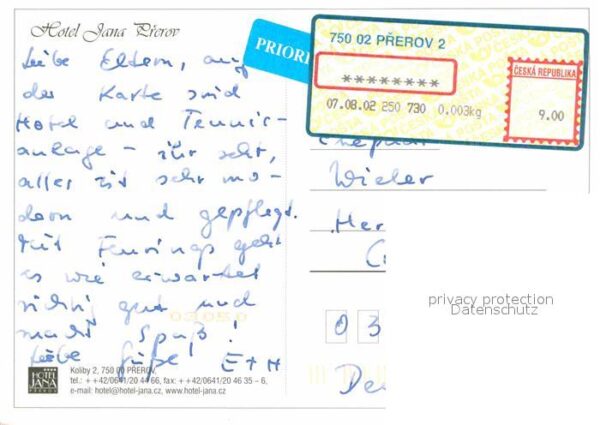 Hotel Jana Přerov
Liebe Eltern, auf
der Karte sind
Hotel und Tennis-
anlage – ihr seht,
alles ist sehr mo-
dern und gepflegt.
Mit geht
es wie erwartet
richtig gut und
macht Spaß!
Liebe Grüße E+H
HOTEL
JANA
PŘEROV
Koliby 2, 750 00 PŘEROV,
tel.: ++42/0641/20 44 66, fax: ++42/0641/20 46 35 – 6,
e-mail: hotel@hotel-jana.cz, www.hotel-jana.cz
PRIORI
750 02 PŘEROV 2
********
07.08.02 250 730 0.003kg
ČESKÁ REPUBLIKA
9.00
Ehepaar
Her
03050
0 3
privacy protection
Datenschutz